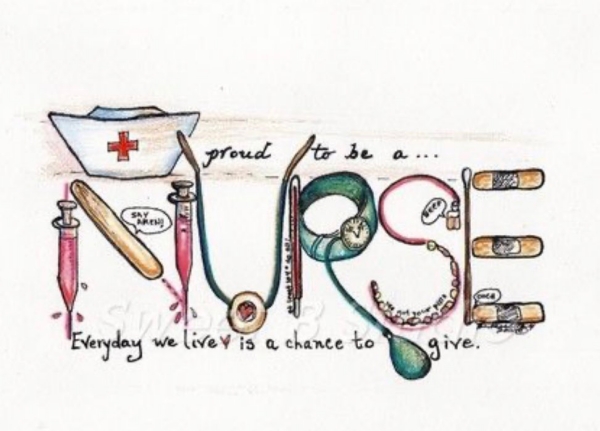 proud to be a...
NURSE
SAY AHEN!
BEEP
OUCH
Everyday we live is a chance to give.